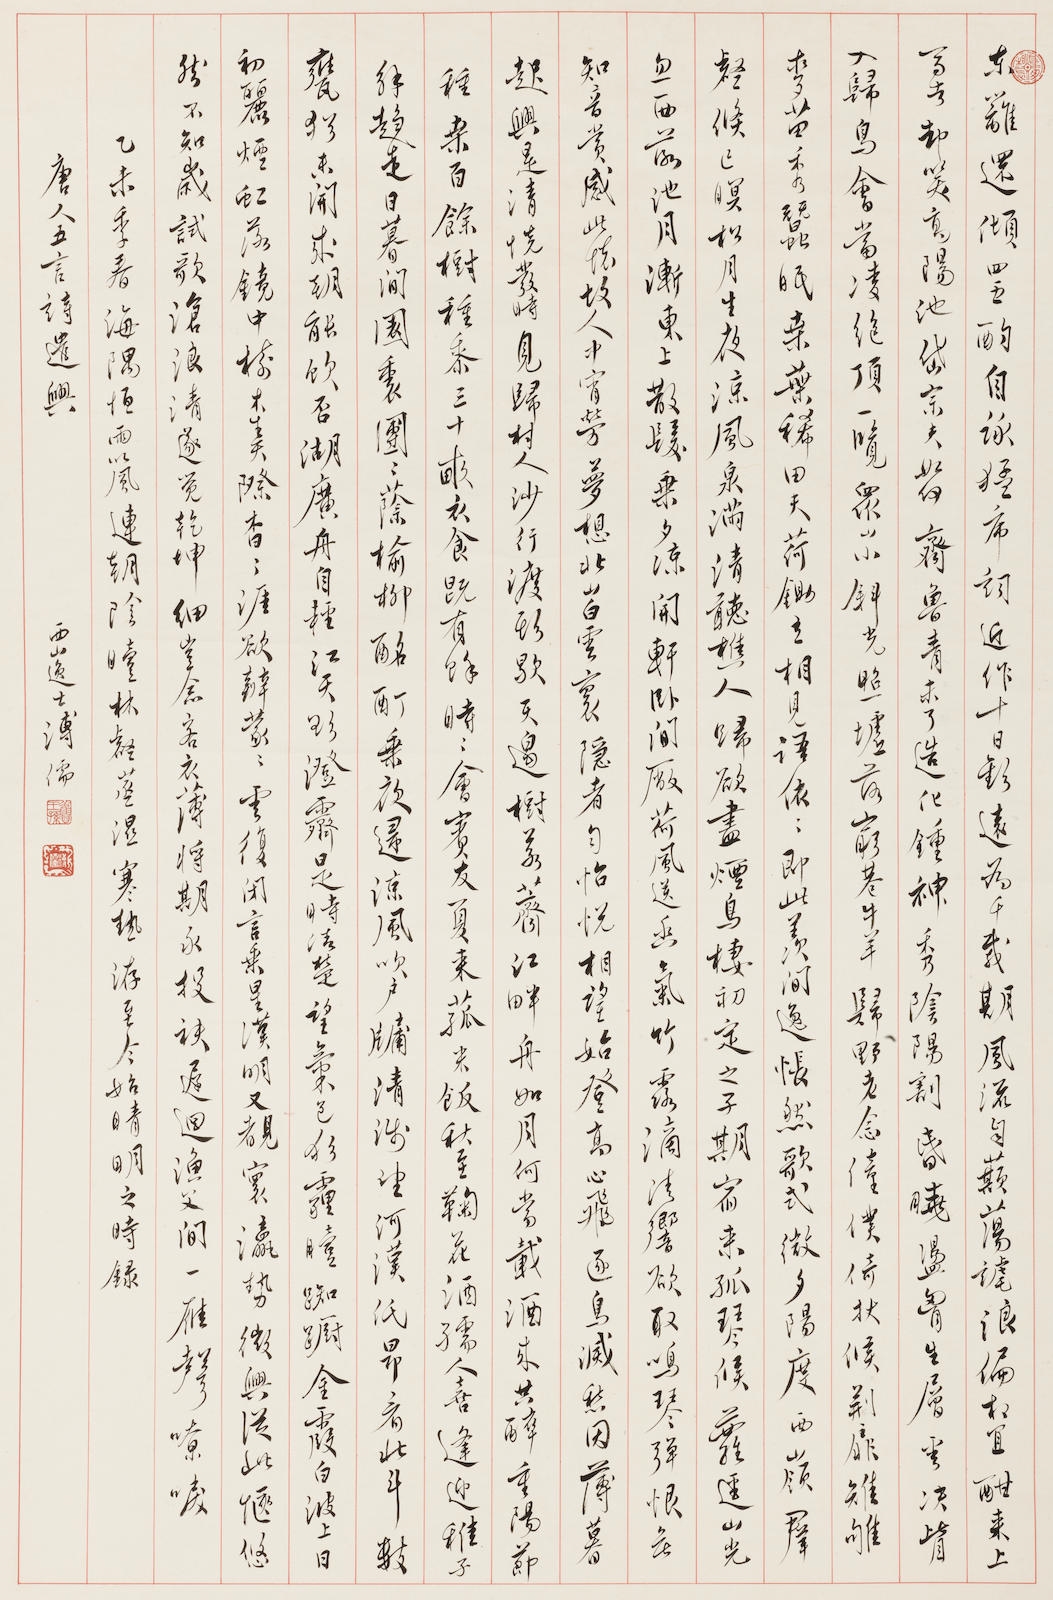 東籬還傾四五酌自詠猛虎詞近作十日歡遠為千載期風流自簸蕩謔浪偏相宜酣來上
馬去卻笑高陽池岱宗夫如何齊魯青未了造化鍾神秀陰陽割昏曉盪胷生層雲決眥
入歸鳥會當凌絕頂一覽眾山小斜光照墟落窮巷牛羊歸野老念僮僕倚杖候荊扉雉雊
麥苗秀蠶眠桑葉稀田夫荷鋤立相見語依依即此羨閒逸悵然歌式微夕陽度西嶺羣
壑倏已暝松月生夜涼風泉滿清聽樵人歸欲盡煙鳥棲初定之子期宿來孤琴候蘿逕山光
忽西落池月漸東上散髮乘夕涼開軒臥閒敞荷風送香氣竹露滴清響欲取鳴琴彈恨無
知音賞感此懷故人中宵勞夢想北山白雲裏隱者自怡悅相望始登高心飛逐鳥滅愁因薄暮
起興是清秋發時見歸村人沙行渡頭歇天邊樹若薺江畔舟如月何當載酒來共醉重陽節
種桑百餘樹種黍三十畝衣食既有餘時時會賓友夏來菰米飯秋至鞠花酒孺人喜逢迎稚子
解趨走日暮閒園裏團團蔭榆柳酩酊乘夜還涼風吹戶牖清淺望河漢低昂看北斗數
甕猶未開來朝能飲否湖廣舟自輕江天欲澄霽是時清楚望氣色猶霾曀踟躕金霞白波上日
初麗煙虹落鏡中樹木生天際杳杳涯欲辨蒙蒙雲復閉言乘星漢明又覩寰瀛勢微興從此愜悠
然不知歲試歌滄浪清遂覺乾坤細豈念客衣薄將期永投袂遲迴漁父間一雁聲嘹唳
乙未季春海隅恆雨以風連朝陰曀林壑蒸濕寒熱洊至今始晴明之時錄
唐人五言詩遣興
西山逸士溥儒